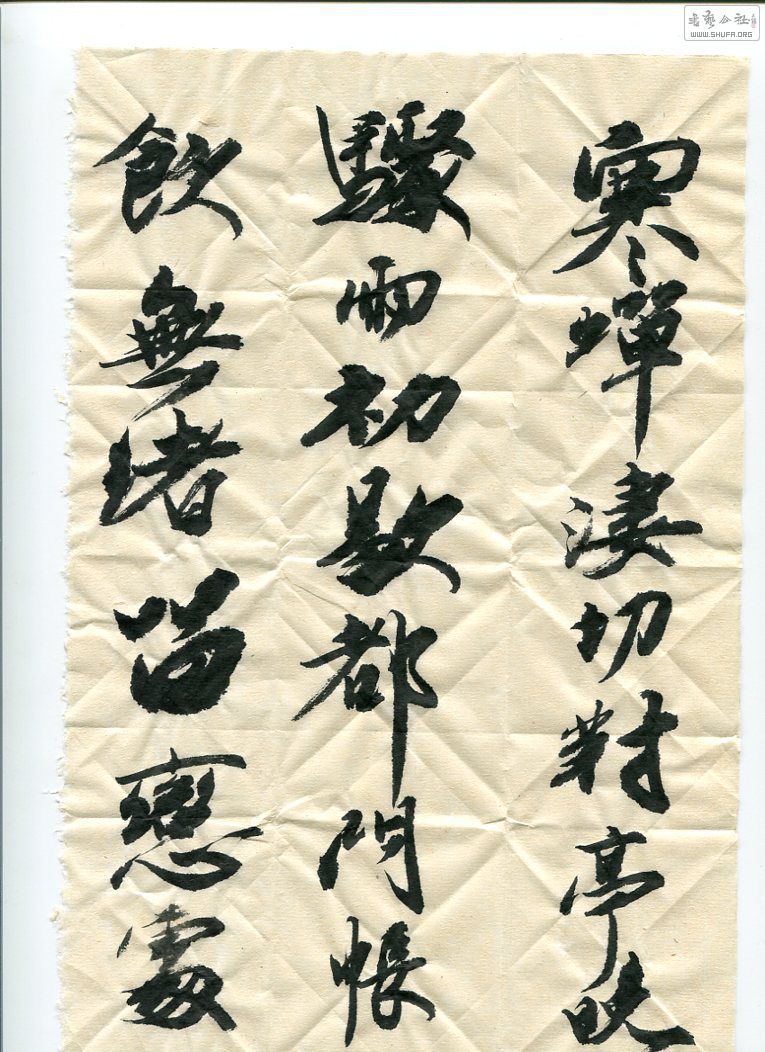 寒蟬淒切對亭晚
驟雨初歇都門帳
飲無緒留戀處
書藝公社
WWW.SHUFA.ORG